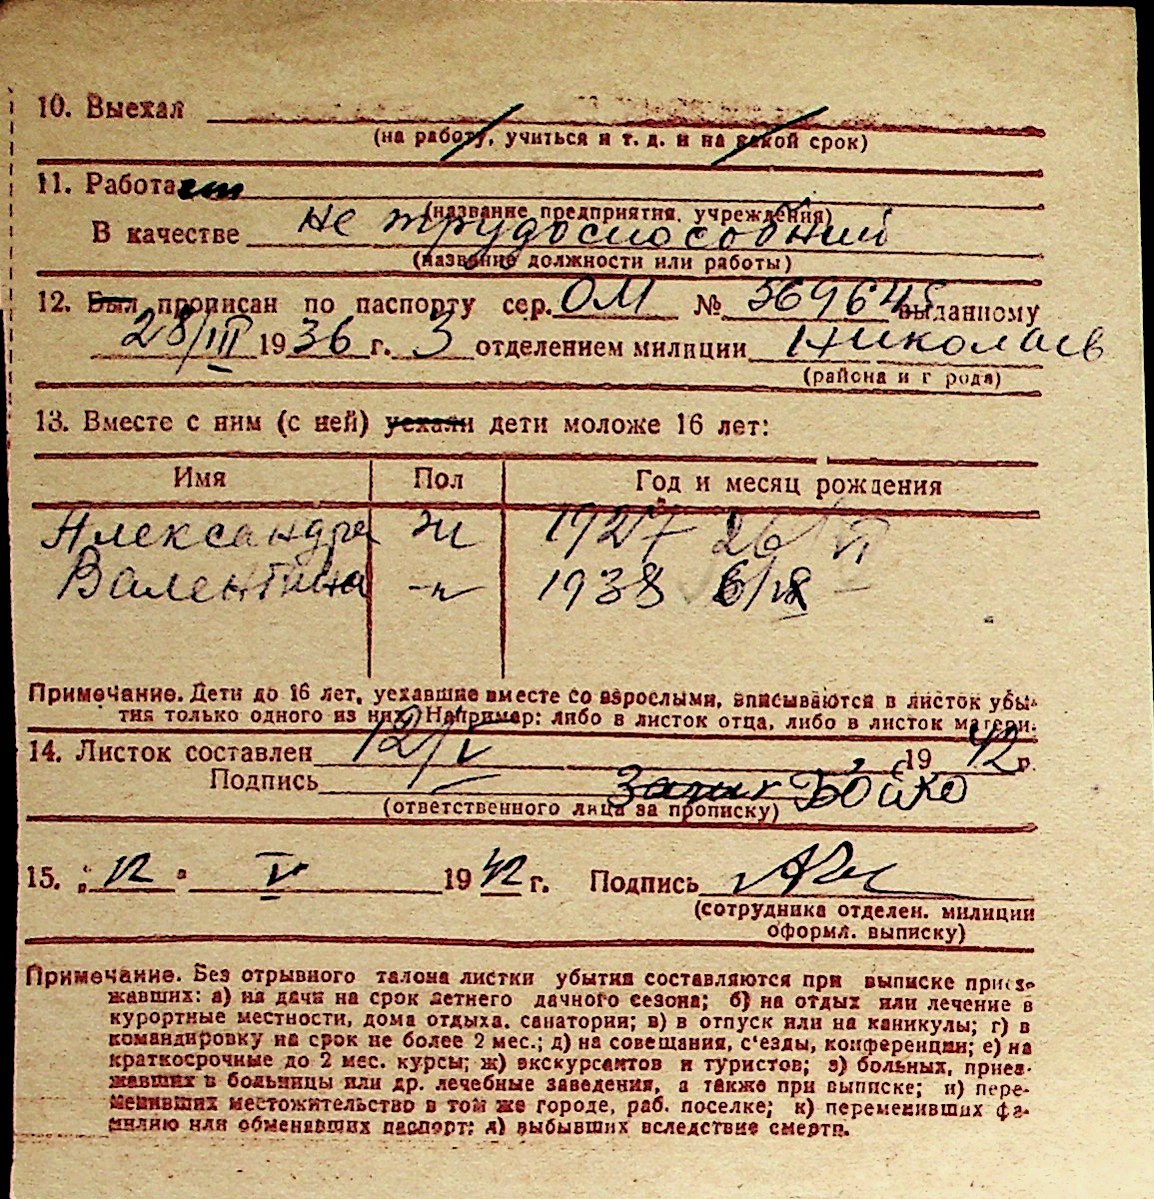 10. Выехал
(на работу, учиться и т. д. и на какой срок)
11. Работает
(название предприятия, учреждения)
В качестве не трудоспособний
(название должности или работы)
12. Был прописан по паспорту сер. ОМ № 569645 выданному
28/III 1936 г. 3 отделением милиции Николаев
(района и г рода)
13. Вместе с ним (с ней) уехали дети моложе 16 лет:
Имя Пол Год и месяц рождения
Александра ж 1927 26/VI
Валентина -"- 1938
Примечание. Дети до 16 лет, уехавшие вместе со взрослыми, вписываются в листок убы-
тия только одного из них. Например: либо в листок отца, либо в листок матери.
14. Листок составлен 12/V 1942 г.
Подпись Бойко
(ответственного лица за прописку)
15. „12" V 1942 г. Подпись
(сотрудника отделен. милиции
оформл. выписку)
Примечание. Без отрывного талона листки убытия составляются при выписке приез-
жавших: а) на дачи на срок летнего дачного сезона; б) на отдых или лечение в
курортные местности, дома отдыха, санатории; в) в отпуск или на каникулы; г) в
командировку на срок не более 2 мес.; д) на совещания, с'езды, конференции; е) на
краткосрочные до 2 мес. курсы; ж) экскурсантов и туристов; з) больных, приез-
жавших в больницы или др. лечебные заведения, а также при выписке; и) пере-
менивших местожительство в том же городе, раб. поселке; к) переменивших фа-
милию или обменявших паспорт; л) выбывших вследствие смерти.